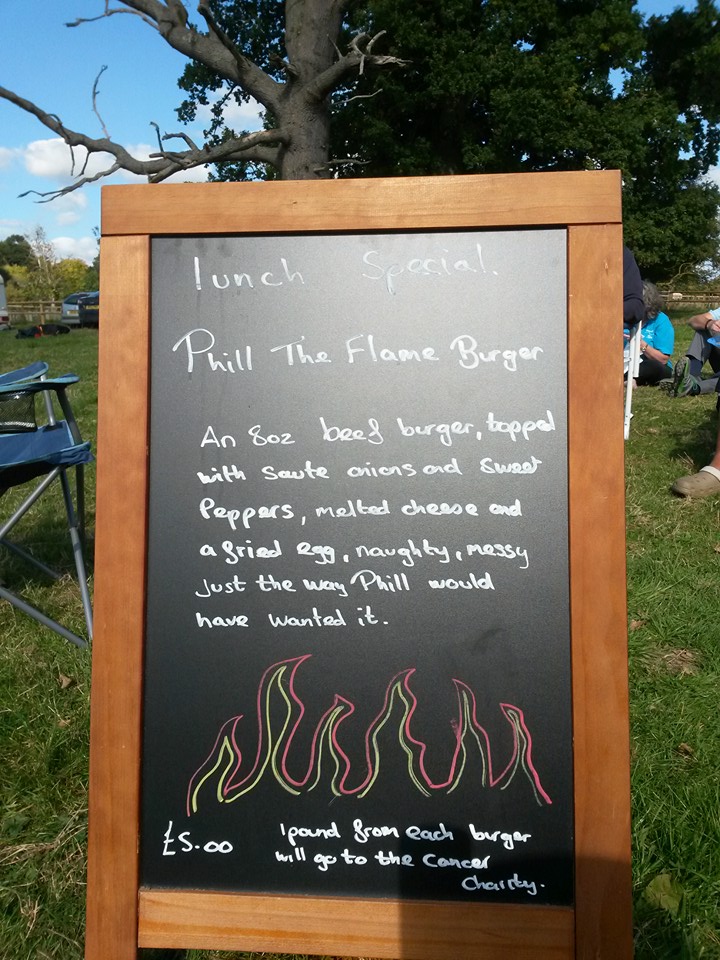 lunch Special.
Phill The Flame Burger
An 8oz beef burger, topped
with saute onions and sweet
Peppers, melted cheese and
a fried egg, naughty, messy
Just the way Phill would
have wanted it.
£5.00 1 pound from each burger
will go to the Cancer
Charity.